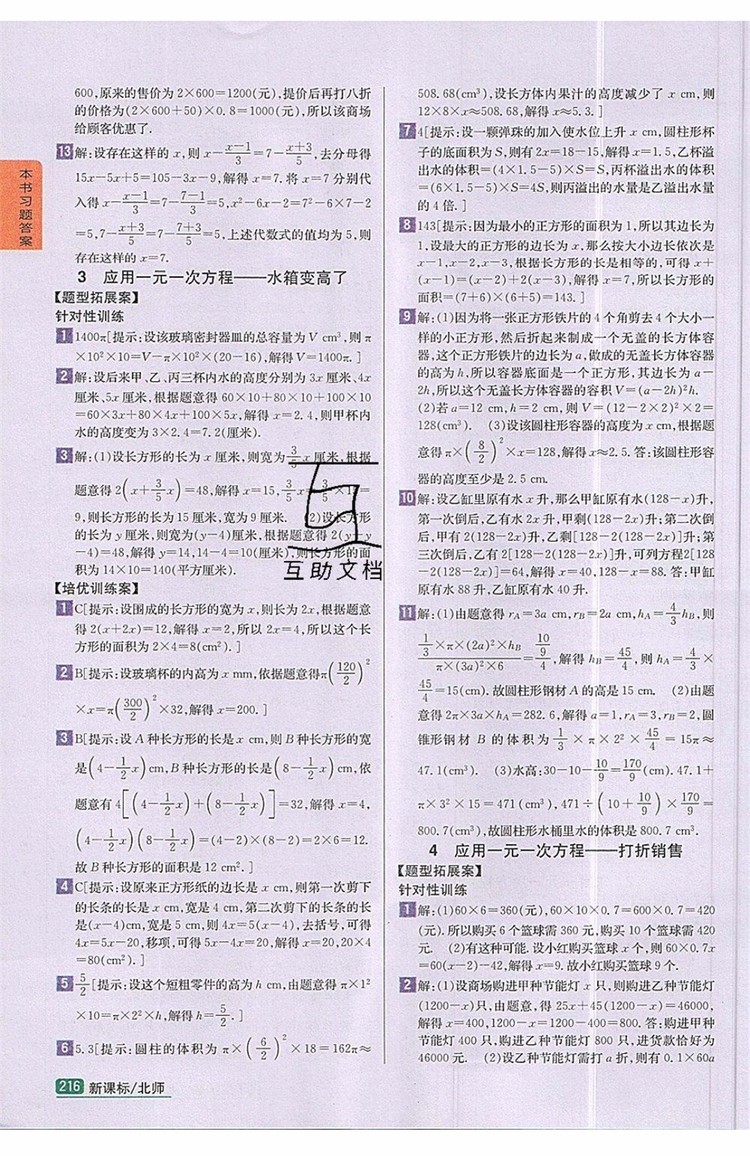 本书习题答案
600,原来的售价为 2×600=1200(元),提价后再打八折
的价格为(2×600+50)×0.8=1000(元),所以该商场
给顾客优惠了.
13 解:设存在这样的 x,则 x-\frac{x-1}{3}=7-\frac{x+3}{5},去分母得
15x-5x+5=105-3x-9,解得 x=7. 将 x=7 分别代
入得 x-\frac{x-1}{3}=7-\frac{7-1}{3}=5,x²-6x-2=7²-6×7-2
=5,7-\frac{x+3}{5}=7-\frac{7+3}{5}=5,上述代数式的值均为 5,则
存在这样的 x=7.
3 应用一元一次方程——水箱变高了
【题型拓展案】
针对性训练
1 1400π[提示:设该玻璃密封器皿的总容量为 V cm³,则 π
×10²×10=V-π×10²×(20-16),解得 V=1400π.]
2 解:设后来甲、乙、丙三杯内水的高度分别为 3x 厘米、4x
厘米、5x 厘米,根据题意得 60×10+80×10+100×10
=60×3x+80×4x+100×5x,解得 x=2.4,则甲杯内
水的高度变为 3×2.4=7.2(厘米).
3 解:(1)设长方形的长为 x 厘米,则宽为\frac{3}{5}x 厘米,根据
题意得 2(x+\frac{3}{5}x)=48,解得 x=15,\frac{3}{5}x=\frac{3}{5}×15=
9,则长方形的长为 15 厘米,宽为 9 厘米. (2)设长方形
的长为 y 厘米,则宽为(y-4)厘米,根据题意得 2(y+y
-4)=48,解得 y=14,14-4=10(厘米),则长方形的面
积为 14×10=140(平方厘米).
互助文档
【培优训练案】
1 C[提示:设围成的长方形的宽为 x,则长为 2x,根据题意
得 2(x+2x)=12,解得 x=2,所以 2x=4,所以这个长
方形的面积为 2×4=8(cm²).]
2 B[提示:设玻璃杯的内高为 x mm,依据题意得π(\frac{120}{2})²
×x=π(\frac{300}{2})²×32,解得 x=200.]
3 B[提示:设 A 种长方形的长是 x cm,则 B 种长方形的宽
是(4-\frac{1}{2}x)cm,B 种长方形的长是(8-\frac{1}{2}x)cm,依
题意有 4[(4-\frac{1}{2}x)+(8-\frac{1}{2}x)]=32,解得 x=4,
(4-\frac{1}{2}x)(8-\frac{1}{2}x)=(4-2)×(8-2)=2×6=12.
故 B 种长方形的面积是 12 cm².]
4 C[提示:设原来正方形纸的边长是 x cm,则第一次剪下
的长条的长是 x cm,宽是 4 cm,第二次剪下的长条的长
是(x-4)cm,宽是 5 cm,则 4x=5(x-4),去括号,可得
4x=5x-20,移项,可得 5x-4x=20,解得 x=20,20×4
=80(cm²).]
5 \frac{5}{2}[提示:设这个短粗零件的高为 h cm,由题意得 π×1²
×10=π×2²×h,解得 h=\frac{5}{2}.]
6 5.3[提示:圆柱的体积为 π×(\frac{6}{2})²×18=162π≈
216 新课标/北师
508.68(cm³),设长方体内果汁的高度减少了 x cm,则
12×8×x≈508.68,解得 x≈5.3.]
7 4[提示:设一颗弹珠的加入使水位上升 x cm,圆柱形杯
子的底面积为 S,则有 2x=18-15,解得 x=1.5,乙杯溢
出水的体积=(4×1.5-5)×S=S,丙杯溢出水的体积
=(6×1.5-5)×S=4S,则丙溢出的水量是乙溢出水量
的 4 倍.]
8 143[提示:因为最小的正方形的面积为 1,所以其边长为
1,设最大的正方形的边长为 x,那么按大小边长依次是
x-1,x-2,x-3,根据长方形的长是相等的,可得 x+
(x-1)=(x-2)+2(x-3),解得 x=7,所以长方形的
面积=(7+6)×(6+5)=143.]
9 解:(1)因为将一张正方形铁片的 4 个角剪去 4 个大小一
样的小正方形,然后折起来制成一个无盖的长方体容
器,这个正方形铁片的边长为 a,做成的无盖长方体容器
的高为 h,所以容器底面是一个正方形,其边长为 a-
2h,所以这个无盖长方体容器的容积 V=(a-2h)²h.
(2)若 a=12 cm,h=2 cm,则 V=(12-2×2)²×2=
128(cm³). (3)设该圆柱形容器的高度为 x cm,根据题
意得 π×(\frac{8}{2})²×x=128,解得 x≈2.5. 答:该圆柱形容
器的高度至少是 2.5 cm.
10 解:设乙缸里原有水 x 升,那么甲缸原有水(128-x)升,
第一次倒后,乙有水 2x 升,甲剩(128-2x)升;第二次倒
后,甲有 2(128-2x)升,乙剩[128-2(128-2x)]升;第
三次倒后,乙有 2[128-2(128-2x)]升,可列方程2[128
-2(128-2x)]=64,解得 x=40,128-x=88. 答:甲缸
原有水 88 升,乙缸原有水 40 升.
11 解:(1)由题意得 r_A=3a cm,r_B=2a cm,h_A=\frac{4}{3}h_B,则
\frac{\frac{1}{3}×π×(2a)²×h_B}{π×(3a)²×6}=\frac{\frac{10}{9}}{4},解得 h_B=\frac{45}{4},则 h_A=\frac{4}{3}×
\frac{45}{4}=15(cm). 故圆柱形钢材 A 的高是 15 cm. (2)由题
意得 2π×3a×h_A=282.6,解得 a=1,r_A=3,r_B=2,圆
锥形钢材 B 的体积为 \frac{1}{3}×π×2²×\frac{45}{4}=15π≈
47.1(cm³). (3)水高:30-10-\frac{10}{9}=\frac{170}{9}(cm). 47.1+
π×3²×15=471(cm³),471÷(10+\frac{10}{9})×\frac{170}{9}=
800.7(cm³),故圆柱形水桶里水的体积是 800.7 cm³.
4 应用一元一次方程——打折销售
【题型拓展案】
针对性训练
1 解:(1)60×6=360(元),60×10×0.7=600×0.7=420
(元). 所以购买 6 个篮球需 360 元,购买 10 个篮球需 420
元. (2)有这种可能. 设小红购买篮球 x 个,则 60×0.7x
=60(x-2)-42,解得 x=9. 故小红购买篮球 9 个.
2 解:(1)设商场购进甲种节能灯 x 只,则购进乙种节能灯
(1200-x)只,由题意,得 25x+45(1200-x)=46000,
解得 x=400,1200-x=1200-400=800. 答:购进甲种
节能灯 400 只,购进乙种节能灯 800 只,进货款恰好为
46000 元. (2)设乙种节能灯需打 a 折,则有 0.1×60a